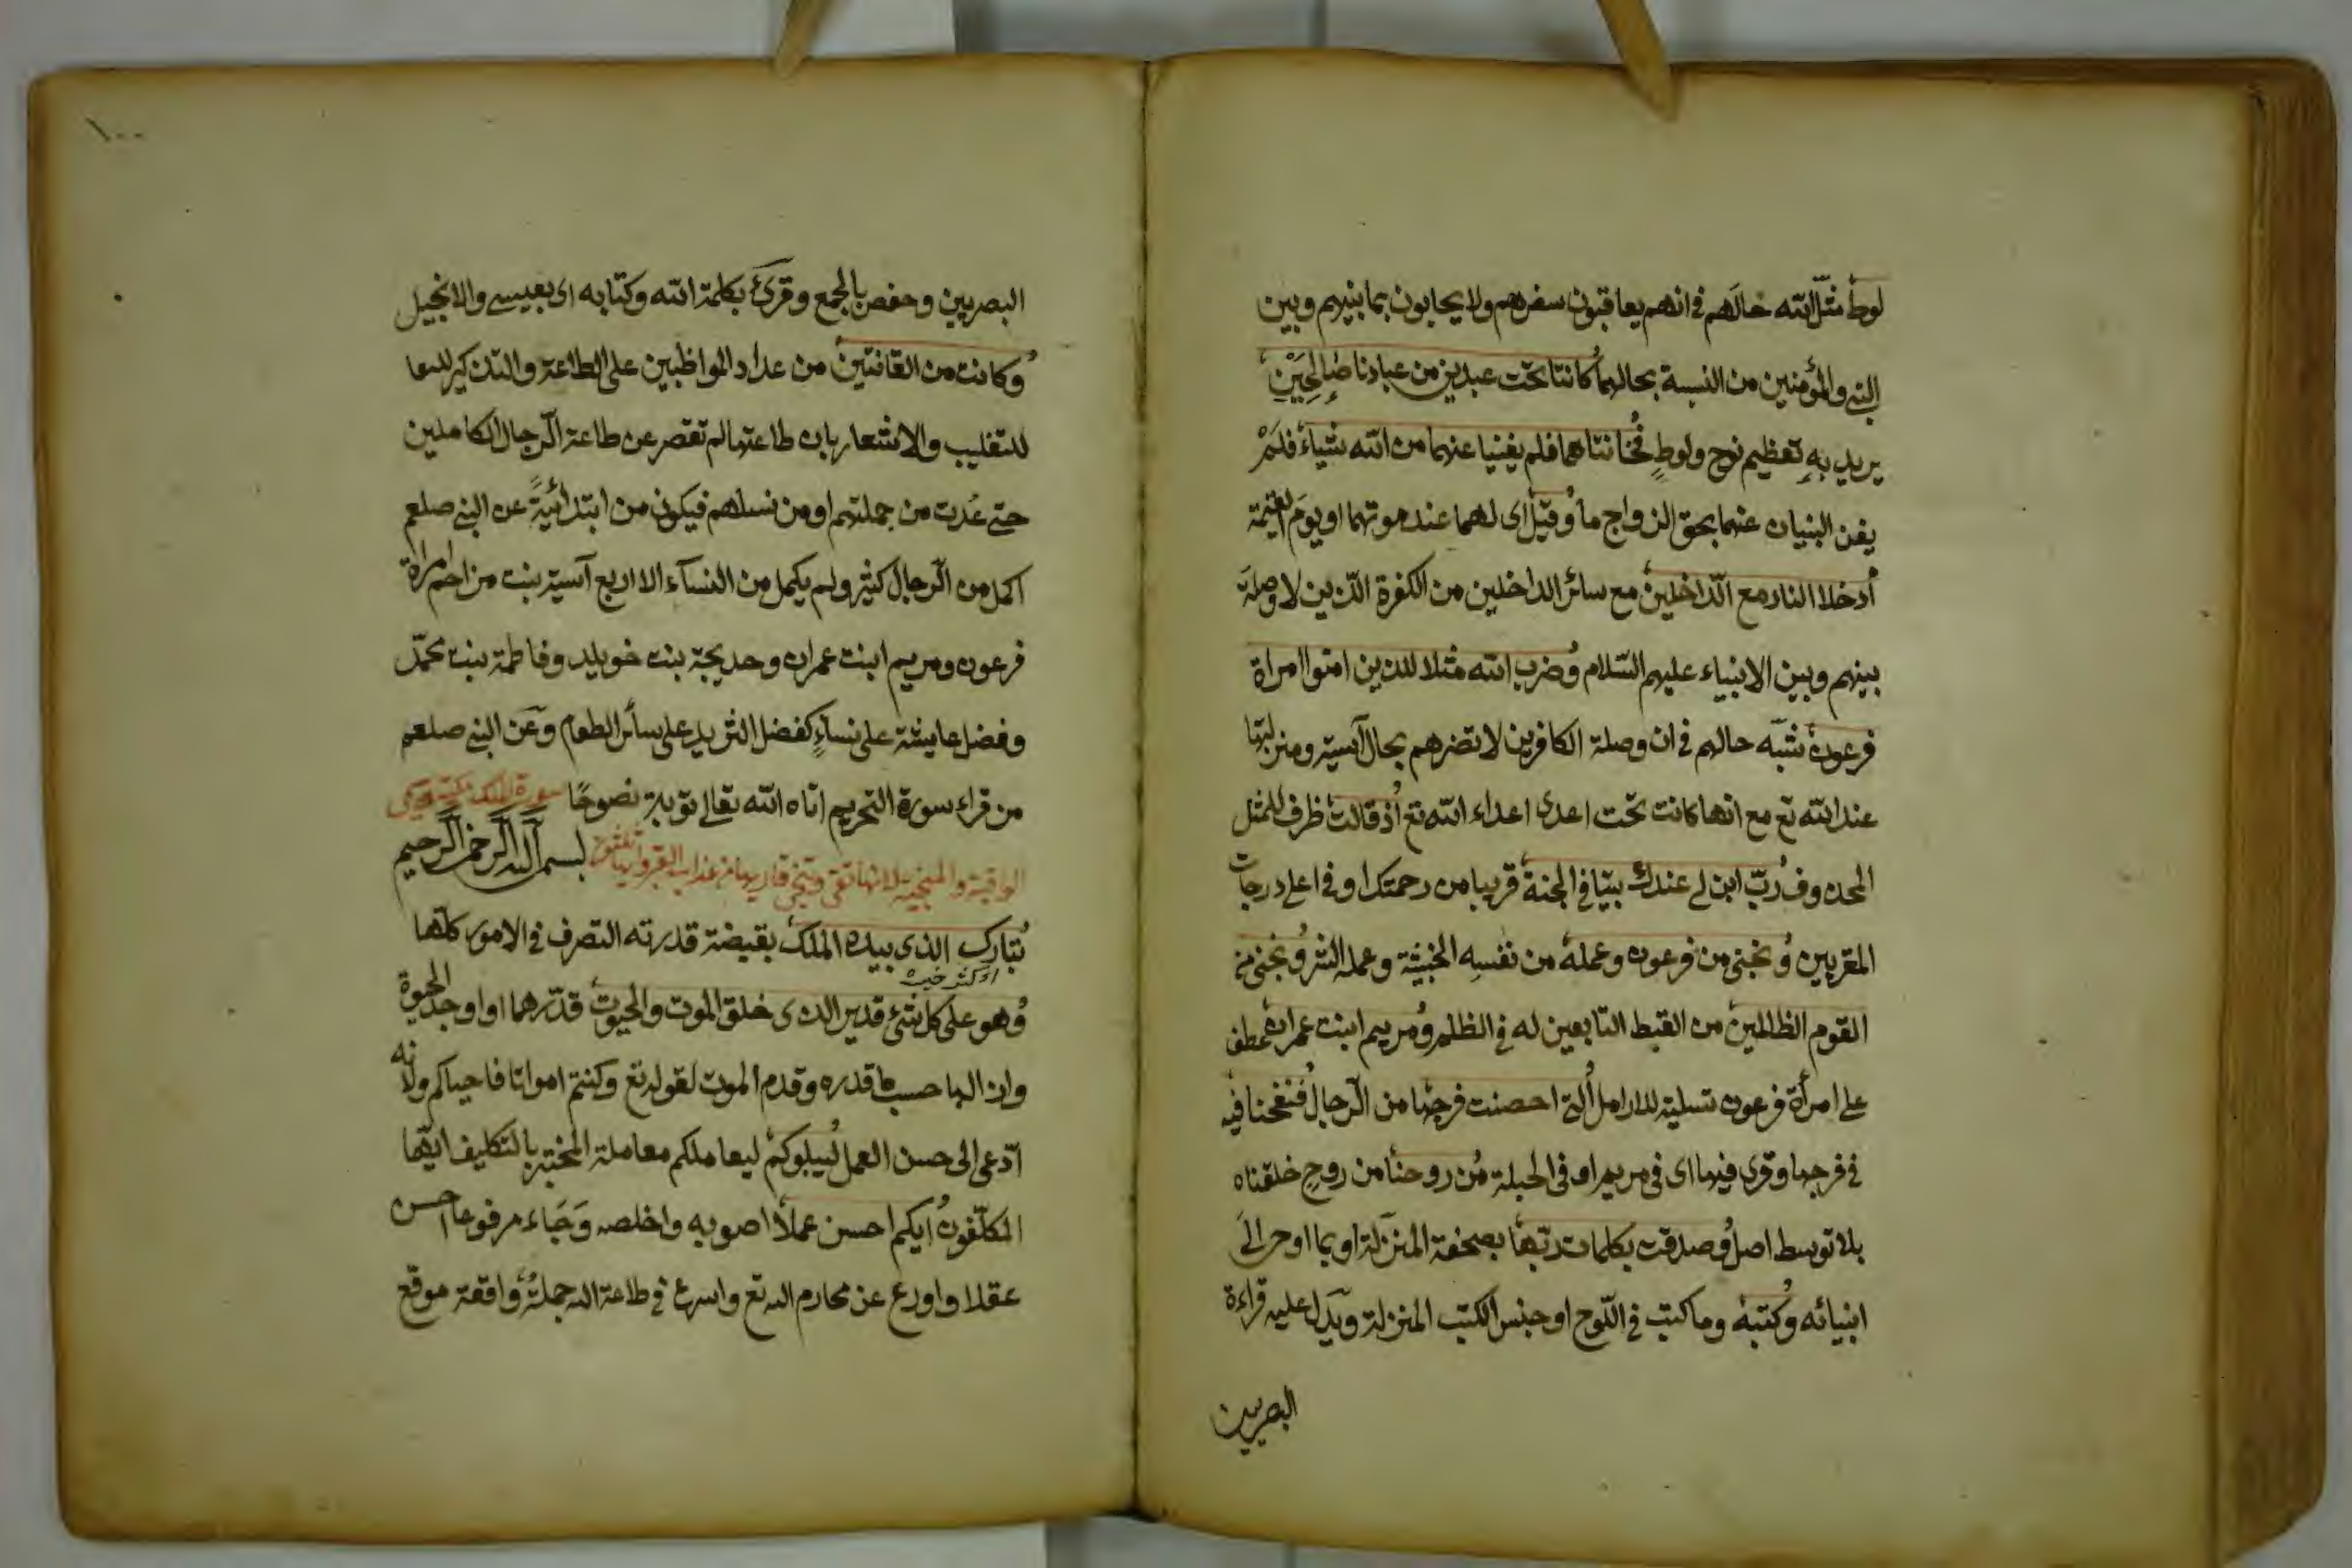 لوط مثّل الله حالهم فى انهم يعاقبون بكفرهم ولا يحابون بما بينهم وبين
النبى والمؤمنين من النسبة بحالهما كانتا تحت عبدين من عبادنا صالحين
يريد به تعظيم نوح ولوط فخانتاهما فلم يغنيا عنهما من الله شيأ فلم
يغن النبيان عنهما بحق الزواج ما وقيل اى لهما عند موتهما او يوم القيمة
أدخلا النار مع الداخلين مع سائر الداخلين من الكفرة الذين لا وصلة
بينهم وبين الانبياء عليهم السّلام وضرب الله مثلا للذين امنوا امراة
فرعون شبّه حالهم فى ان وصلة الكافرين لا تضرهم بحال آسية ومنزلتها
عند الله تع مع انها كانت تحت اعدى اعداء الله تع أذ قالت ظرف للمثل
المحذوف ربّ ابن لى عندك بيتا فى الجنة قريبا من رحمتك او فى اعلى درجات
المقربين ونجنى من فرعون وعمله من نفسه الخبيثة وعمله الشر ونجنى من
القوم الظالمين من القبط التابعين له فى الظلم ومريم ابنت عمران عطف
على امرأة فرعون تسلية للارامل التى احصنت فرجها من الرجال فنفخنا فيه
فى فرجها وقرى فيها اى فى مريم او فى الحبلة من روحنا من روح خلقناه
بلا توسط اصل وصدقت بكلمات ربّها بصحفه المنزلة او بما اوحى الى
انبيائه وكتبه وما كتب فى اللّوح او جنس الكتب المنزلة ويدل عليه قراءة
البصريين
١٠٠
البصريين وحفص بالجمع وقرئ بكلمة الله وكتابه اى بعيسى والانجيل
وكانت من القانتين من عداد المواظبين على الطاعة والتذكير
للتغليب والاشعار بان طاعتها لم تقصر عن طاعة الرجال الكاملين
حتى عُدت من جملتهم او من نسلهم فيكون من ابتدائيةً عن النبى صلعم
اكمل من الرجال كثير ولم يكمل من النسآء الا اربع آسية بنت مزاحم امراة
فرعون ومريم ابنت عمران وخديجة بنت خويلد وفاطمة بنت محمّد
وفضل عايشة على نساء كفضل الثريد على سائر الطعام وعن النبى صلعم
من قراء سورة التحريم اتاه الله تعالى توبة نصوحًا سورة الملك مكية
الواقية والمنجية لانها تقى وتنجى قاريها من عذاب القبر وايها ثلثون بسم الله الرحمن الرحيم
تبارك الذى بيده الملك بقبضة قدرته التصرف فى الامور كلّها
اى كثر خيره
وهو على كل شئ قدير الذى خلق الموت والحيوة قدّرهما او اوجد الحيوة
وازالها حسب ما قدره وقدم الموت لقوله تع وكنتم امواتا فاحياكم ولانه
ادّعى الى حسن العمل ليبلوكم ليعاملكم معاملة المختبر بالتكليف ايّها
المكلّفون ايكم احسن عملا اصوبه واخلصه وجاء مرفوعا احسن
عقلا واورع عن محارم الله تع واسرع فى طاعة الله جملة واقعة موقع